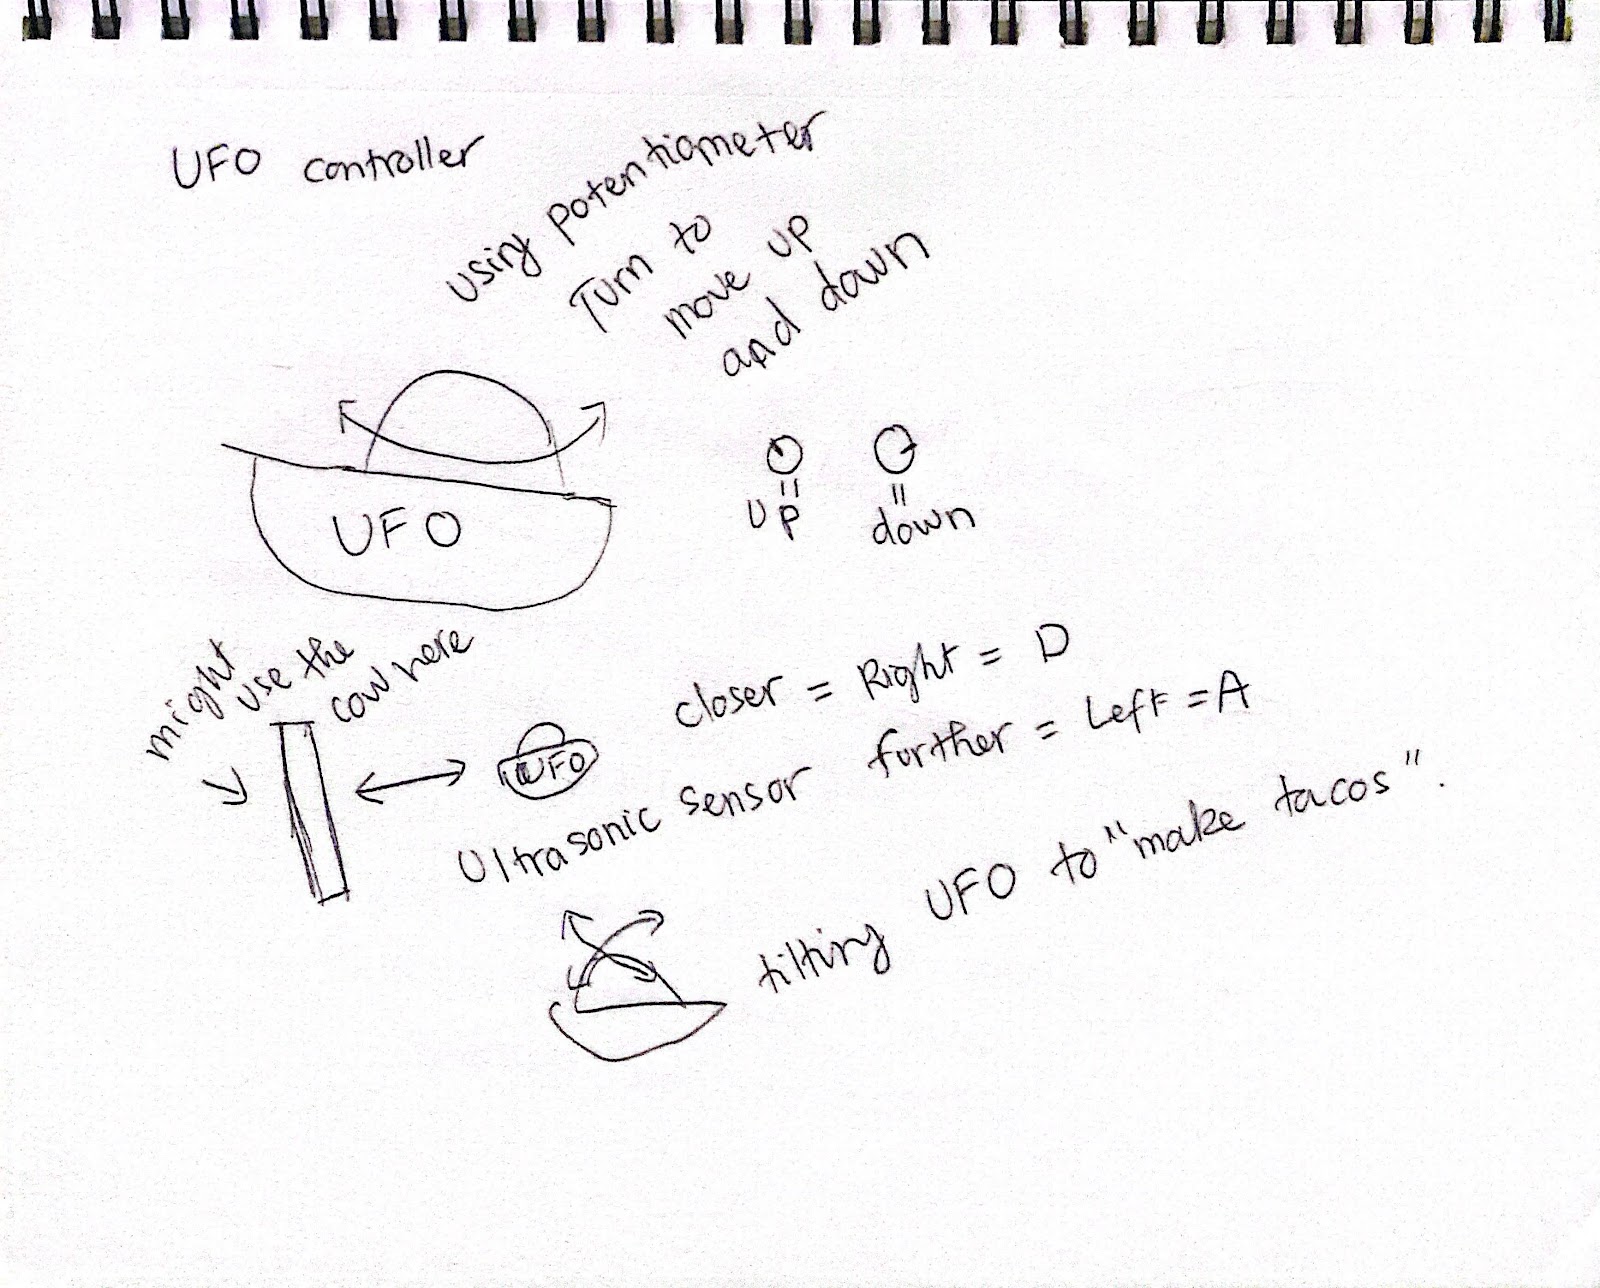 UFO controller
using potentiometer
Turn to
move up
and down
UFO
up
down
might
use the
cow here
UFO
closer = Right = D
Ultrasonic sensor further = Left = A
tilting UFO to "make tacos".